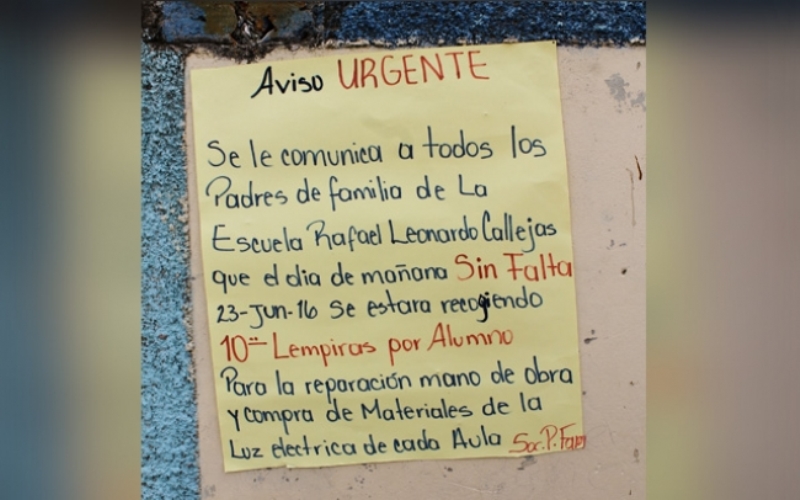 Aviso URGENTE
Se le comunica a todos los
Padres de familia de La
Escuela Rafael Leonardo Callejas
que el dia de mañana Sin Falta
23-Jun-16 Se estara recogiendo
10.= Lempiras por Alumno
Para la reparación mano de obra
y compra de Materiales de la
Luz electrica de cada Aula Soc. P. Fam